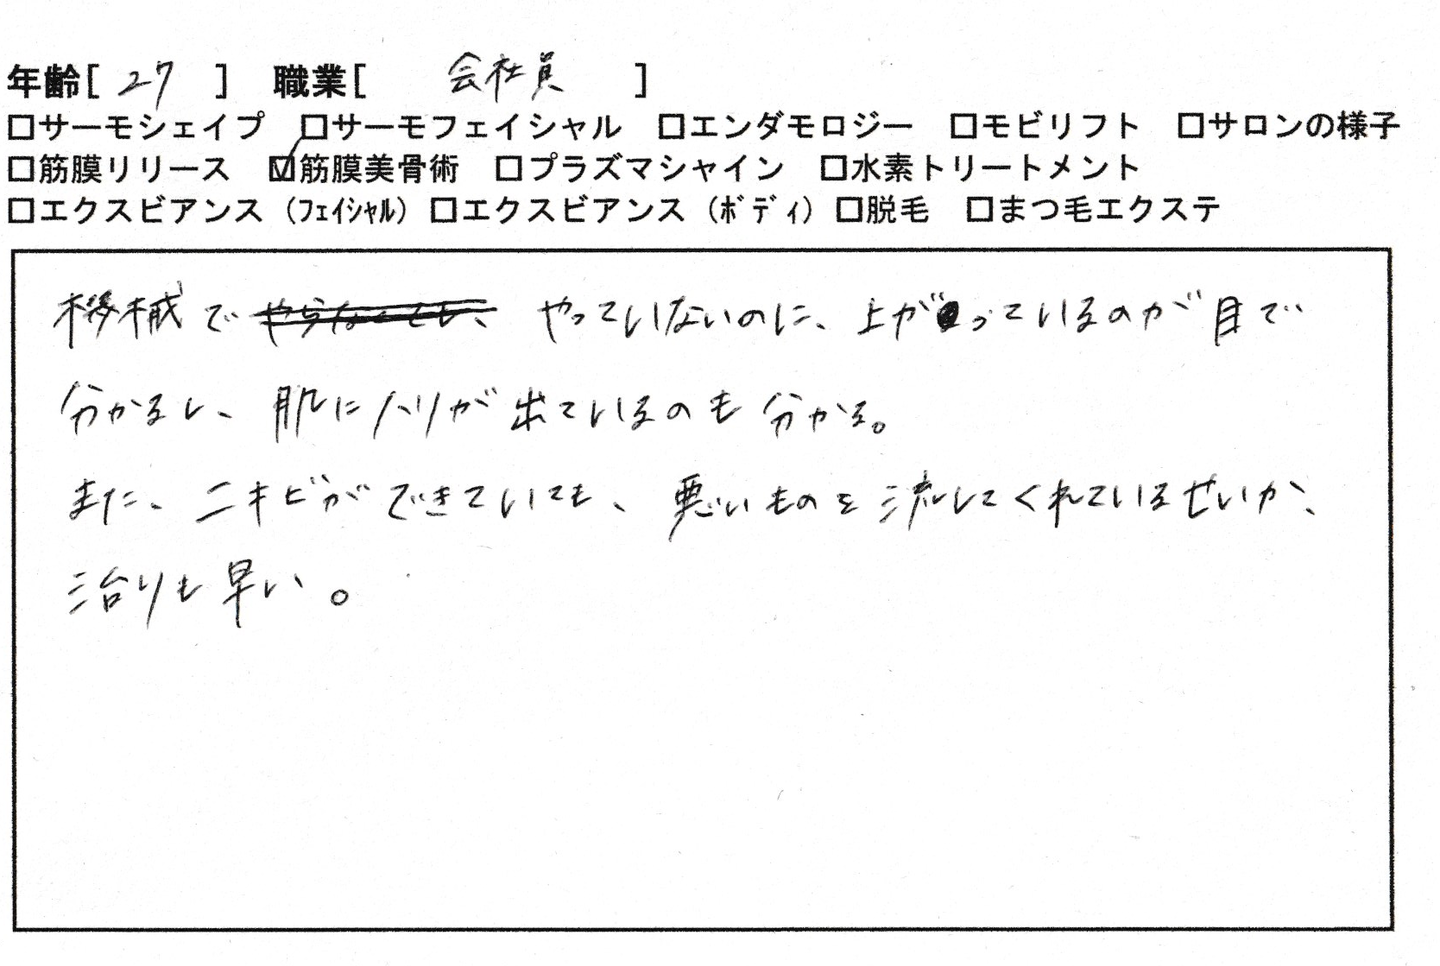 年齢[ 27 ] 職業[ 会社員 ]
□サーモシェイプ □サーモフェイシャル □エンダモロジー □モビリフト □サロンの様子
□筋膜リリース ☑筋膜美骨術 □プラズマシャイン □水素トリートメント
□エクスビアンス（ﾌｪｲｼｬﾙ）□エクスビアンス（ﾎﾞﾃﾞｨ）□脱毛 □まつ毛エクステ
機械で やらなくても、 やっていないのに、上がっているのが目で
分かるし、肌にハリが出ているのも分かる。
また、ニキビができていても、悪いものを流してくれているせいか、
治りも早い。